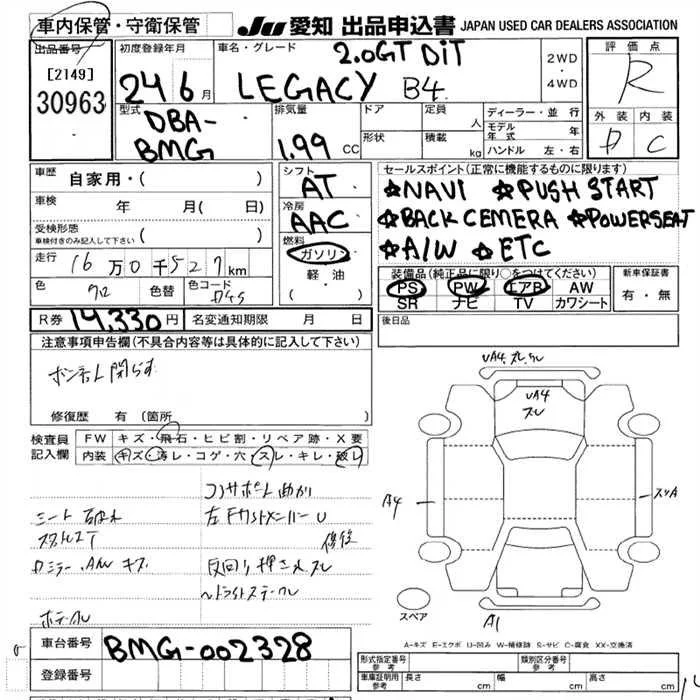 車内保管・守衛保管
JU 愛知 出品申込書 JAPAN USED CAR DEALERS ASSOCIATION
出品番号
[2149]
30963
初度登録年月
24 6 月
車名・グレード
2.0GT DiT
LEGACY B4
2WD
・
4WD
評価点
R
外装 内装
D C
型式
DBA-
BMG
排気量
1.99 CC
ドア
形状
定員
人
積載
kg
ディーラー・並行
モデル
年式
年
ハンドル 左・右
車歴
自家用・( )
車検
年 月( 日)
受検形態
車検付きのみ記入して下さい
( )
走行
16万0千527km
色
クロ
色替
色コード
D4S
シフト
AT
冷房
AAC
燃料
ガソリン
・
軽油
( )
セールスポイント(正常に機能するものに限ります)
☆NAVI ☆PUSH START
☆BACK CEMERA ☆POWERSEAT
☆A/W ☆ETC
装備品(純正品に限り○をつけてください)
PS PW エアB AW
SR ナビ TV カワシート
新車保証書
有・無
R券 14,330円
名変通知期限 月 日
後日品
注意事項申告欄(不具合内容等は具体的に記入して下さい)
ボンネット閉らず
修復歴 有(箇所
検査員
記入欄
FW キズ・飛石・ヒビ割・リペア跡・X要
内装 キズ・汚レ・コゲ・穴・スレ・キレ・破レ
コアサポート曲がり
シート破れ
左Fサイドメンバー U
修復
ミラー、A/W キズ
UA4 スレ
A4
A1
スペア
A-キズ E-エクボ U-凹み W-補修跡 S-サビ C-腐食 XX-交換済
車台番号
BMG-002328
登録番号
形式指定番号
参考
類別区分番号
参考
車庫証明用
参考
長さ cm 幅 cm 高さ cm